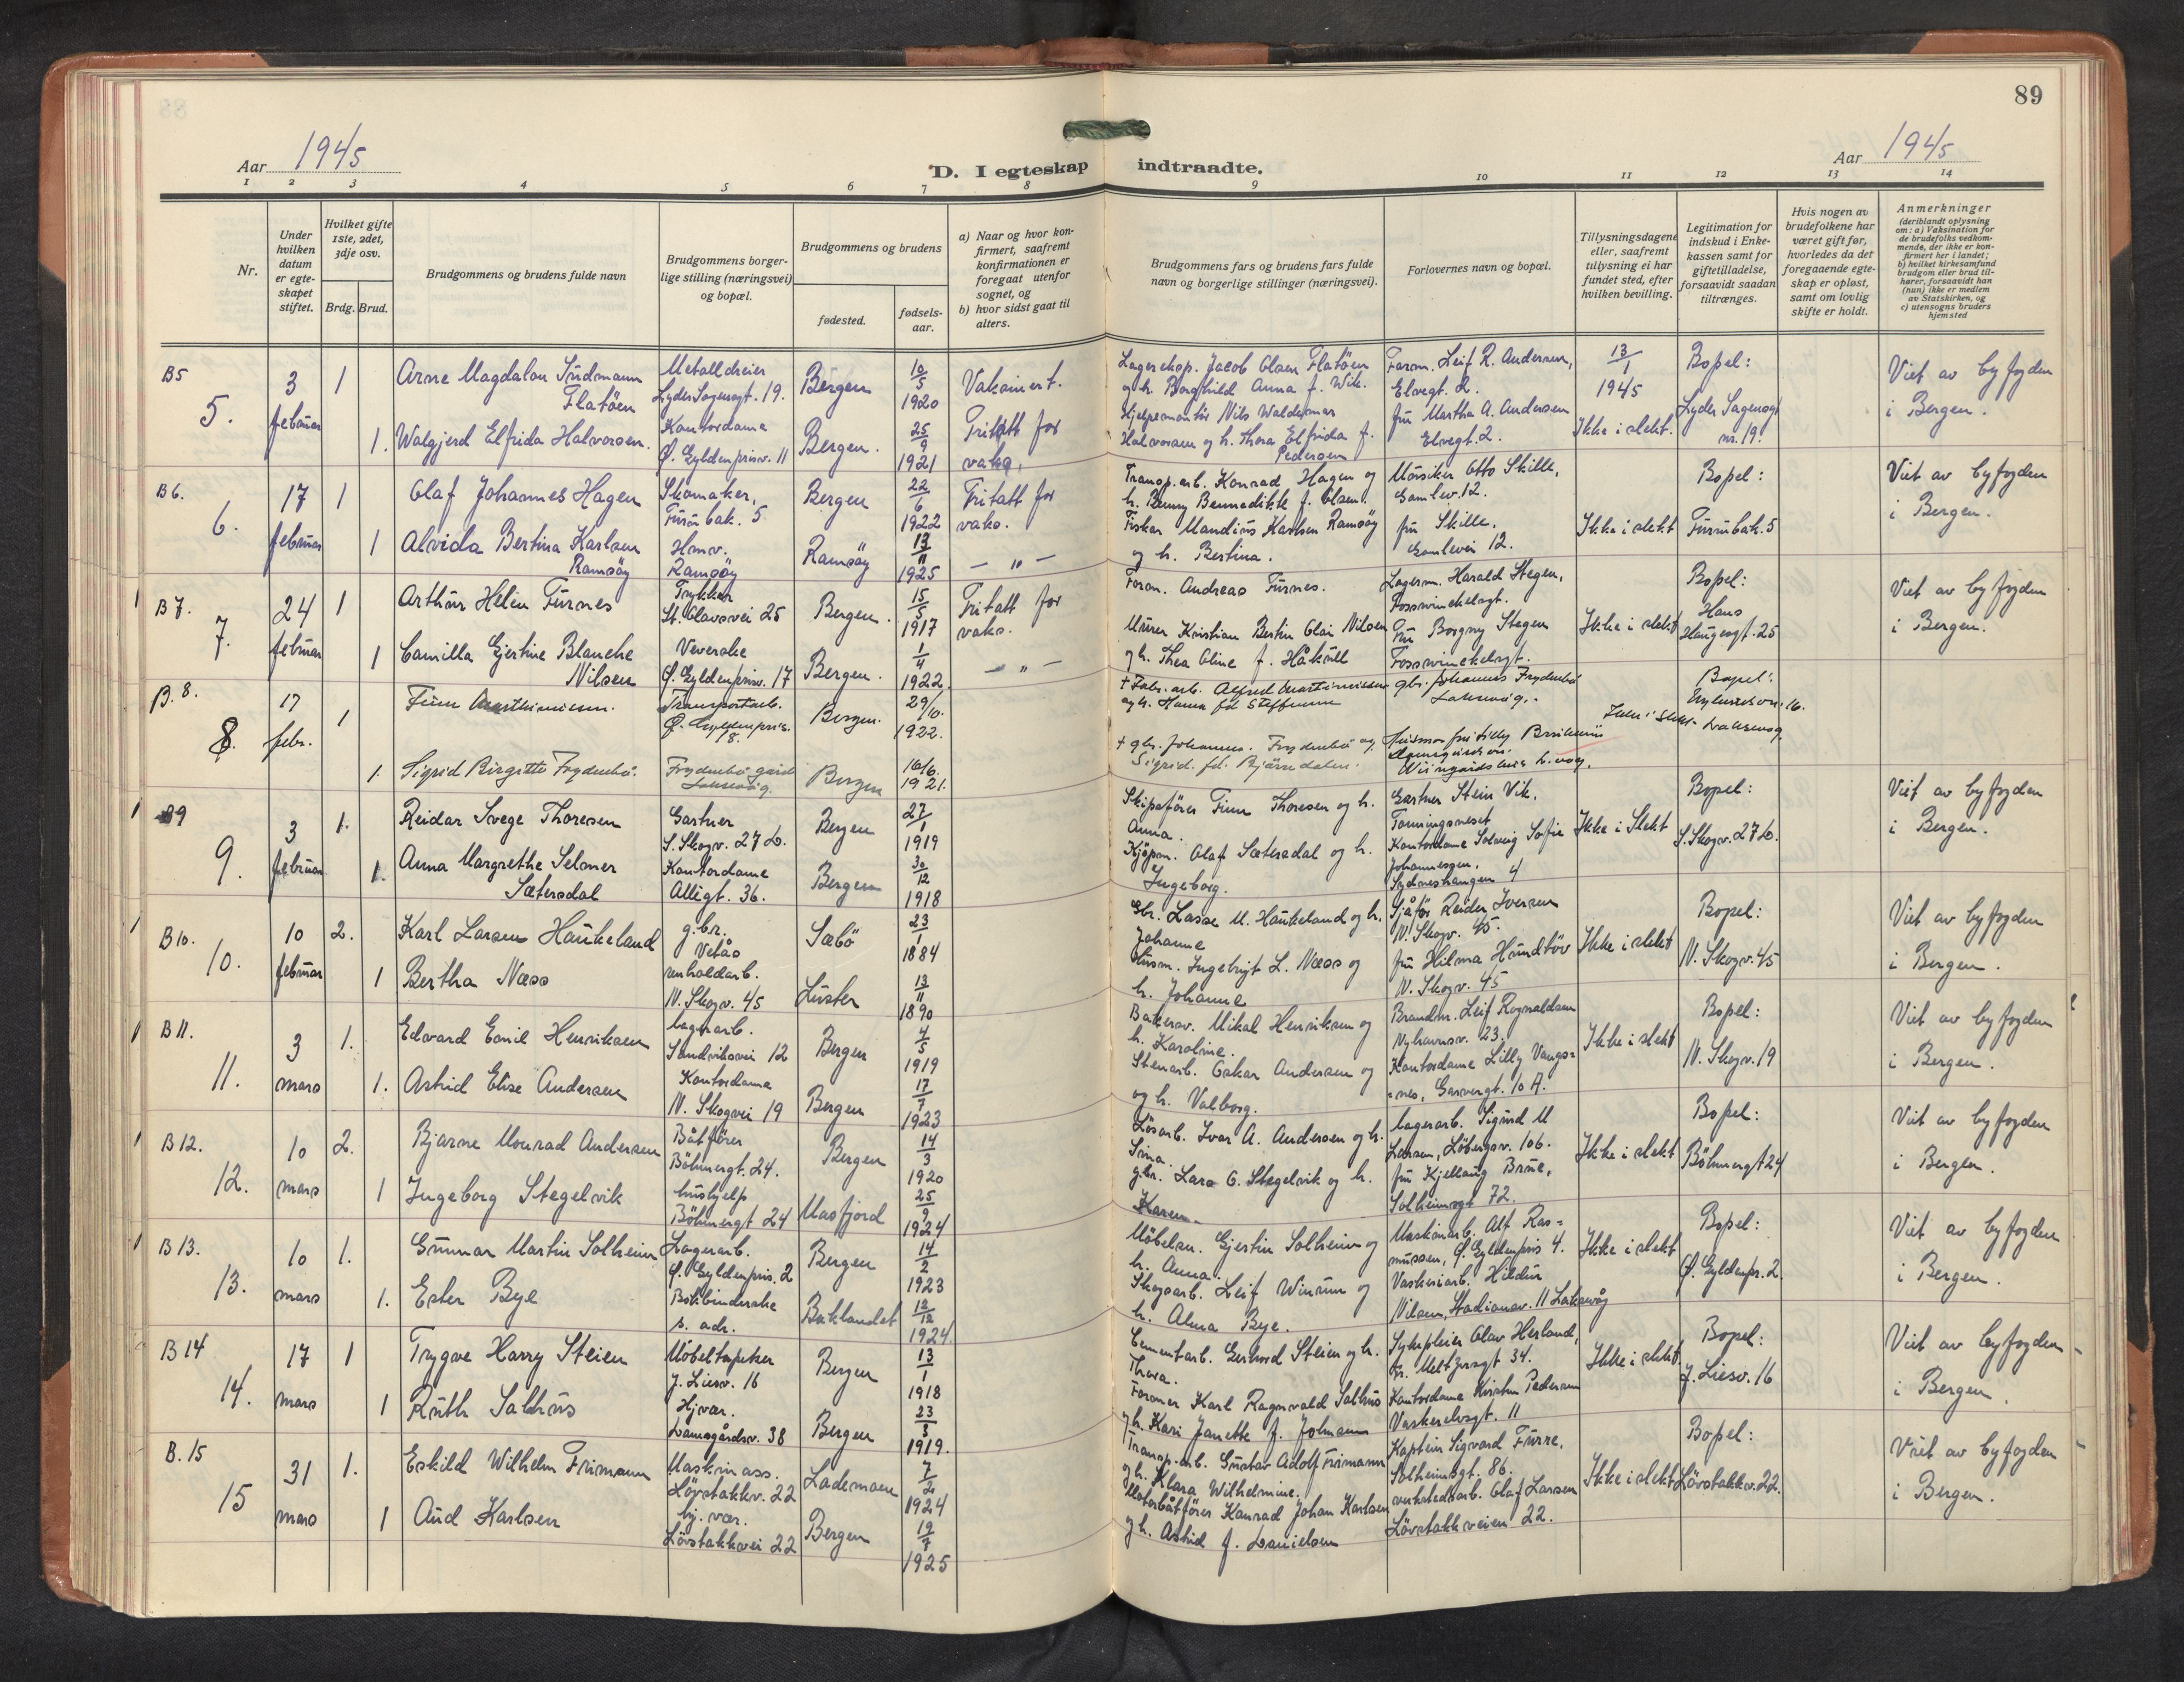 89
Aar 1945
D. I egteskap indtraadte.
Aar 1945
1 2 3 4 5 6 7 8 9 10 11 12 13 14
Nr.
Under hvilken datum er egte-skapet stiftet.
Hvilket gifte 1ste, 2det, 3dje osv.
Brdg. Brud.
Brudgommens og brudens fulde navn
Brudgommens borger-lige stilling (næringsvei) og bopæl.
Brudgommens og brudens
fødested.
fødsels-aar.
a) Naar og hvor kon-firmert, saafremt konfirmationen er foregaat utenfor sognet, og
b) hvor sidst gaat til alters.
Brudgommens fars og brudens fars fulde navn og borgerlige stillinger (næringsvei).
Forlovernes navn og bopæl.
Tillysningsdagene eller, saafremt tillysning ei har fundet sted, efter hvilken bevilling.
Legitimation for indskud i Enke-kassen samt for giftetilladelse, forsaavidt saadan tiltrænges.
Hvis nogen av brudefolkene har været gift før, hvorledes da det foregaaende egte-skap er opløst, samt om lovlig skifte er holdt.
Anmerkninger
(deriblandt oplysning om: a) Vaksination for de brudefolks vedkom-mende, der ikke er kon-firmert her i landet;
b) hvilket kirkesamfund brudgom eller brud til-hører, forsaavidt han (hun) ikke er medlem av Statskirken, og
c) utensogns bruders hjemsted
B5
5.
3 februar
1
Arne Magdalon Sudmann Flatöen
Metalldreier
Lyder Sagensgt. 19.
Bergen
10/5 1920
Vaksinert.
Lagereksp. Jacob Olsen Flatöen
og h. Borghild Anna f. Wik.
Form. Leif R. Andersen,
Elvegt. 2.
13/1 1945
Bopel:
Viet av byfogden
i Bergen.
1.
Walgjerd Elfrida Halvorsen.
Kontordame
Ø. Gyldenprisv. 11
Bergen.
25/9 1921
Fritatt for
vaks.
Hjelpemontör Nils Waldemar
Halvorsen og h. Thora Elfrida f.
Pedersen
fru Martha A. Andersen
Elvegt. 2.
Ikke i slekt.
Lyder Sagensgt
nr. 19.
B6.
6.
17 februar
1
Olaf Johannes Hagen
Skomaker,
Furubak. 5
Bergen
22/6 1922
Fritatt for
vaks.
Transp.arb. Konrad Hagen og
h. Benny Bennedikte f. Olsen.
Musiker Otto Skille,
Gamlev. 12.
Bopel:
Viet av byfogden
i Bergen.
1
Alvida Bertina Karlsen
Ramsöy
Hmv.
Ramsöy
Ramsöy
13/11 1925
— " —
Fisker Mandius Karlsen Ramsöy
og h. Bertina.
fru Skille,
Gamlevei 12.
Ikke i slekt
Furubak. 5
B7.
7.
24 februar
1
Arthur Helin Furnes
Trykker
St. Olavsvei 25
Bergen.
15/5 1917
Fritatt for
vaks.
Form. Andreas Furnes.
Lagerm. Harald Stegen,
Fosswinckelsgt.
Bopel:
Hans
Haugesgt. 25
Viet av byfogden
i Bergen.
1
Camilla Gjertine Blanche
Nilsen
Veverske
Ø. Gyldenprisv. 17
Bergen.
1/4 1922.
— " —
Murer Kristian Bertin Olai Nilsen
og h. Thea Oline f.
Fru Borgny Stegen
Fosswinckelsgt.
Ikke i slekt
B. 8.
8.
17 febr.
1
Finn Martinussen.
Transportarb.
Ø. Gyldenpris.
18.
Bergen.
29/10. 1922.
+ Fabr.arb. Alfred Martinussen
og h. Hanna fd Steffensen
gbr. Johannes Frydenbö
Laksevåg.
Bopel:
Ikke i slekt
Laksevåg
1.
Sigrid Birgitte Frydenbö.
Frydenbö gård
Laksevåg.
Bergen
16/6. 1921.
+ gbr. Johannes. Frydenbö og
Sigrid. fd.
B9
9.
3 februar
1.
Reidar Svege Thoresen
Gartner
S. Skogv. 27 b.
Bergen
27/1 1919
Skipsförer Finn Thoresen og h.
Anna.
Gartner Stein Vik,
Tonningsneset
Ikke i Slekt
Bopel:
S. Skogv. 27 b.
Viet av byfogden
i Bergen.
1.
Anna Margrethe Selmer
Sætersdal
Kontordame
Allégt. 36.
Bergen
30/12 1918
Kjöpm. Olaf Sætersdal og h.
Ingeborg.
Kontordame Solveig Sofie
Johannesen,
Sydneshaugen 4
B10.
10.
10 februar
2.
Karl Larsen Haukeland
g.br.
Vetås
Sæbö
23/1 1884
Gbr. Lasse M. Haukeland og h.
Johanne
Sjåför Reidar Iversen
N. Skogv. 45.
Ikke i slekt
Bopel:
N. Skogv. 45
Viet av byfogden
i Bergen.
1
Bertha Næss
renholdarb.
N. Skogv. 45
Luster
13/11 1890
Husm. Ingebrigt L. Næss og
h. Johanne
fru Hilma Hundtöv
N. Skogv. 45
B11.
11.
3 mars
1.
Edvard Emil Henriksen
lagerarb.
Sandviksvei 12
Bergen
4/5 1919
Bakersv. Mikal Henriksen og
h. Karoline.
Brandm. Leif Rognaldsen
Nyhavnsv. 23.
Ikke i slekt
Bopel:
N. Skogv. 19
Viet av byfogden
i Bergen.
1.
Astrid Elise Andersen
Kontordame
N. Skogvei 19
Bergen
17/7 1923
Stenarb. Oskar Andersen og
og h. Valborg.
Kontordame Lilly Vangs=
=nes, Garvergt. 10 A.
B12.
12.
10 mars
2.
Bjarne Monrad Andersen
Båtförer
Böhmergt. 24.
Bergen
14/3 1920
Lösarb. Ivar A. Andersen og h.
Sina.
lagerarb. Sigurd M
Larsen, Löbergsv. 106.
Ikke i slekt
Bopel:
Böhmergt 24
Viet av byfogden
i Bergen.
1
Ingeborg Stegelvik
hushjelp
Böhmergt 24
Masfjord
25/9 1924
g.br. Lars O. Stegelvik og h.
Karen.
fru Kjellaug Brue,
Solheimsgt 72.
B13.
13.
10 mars
1.
Gunnar Martin Solheim
Lagerarb.
Ø. Gyldenpris. 2
Bergen
14/2 1923
Möbelsn. Gjertin Solheim og
h. Anna.
Maskinarb. Alf Ras=
mussen, Ø. Gyldenpris 4.
Ikke i slekt
Bopel:
Ø. Gyldenpr. 2.
Viet av byfogden
i Bergen.
1.
Ester Bye
Bokbinderske
s. adr.
Baklandet
12/12 1924.
Skogsarb. Leif Winrum og
h. Alma Bye.
Vaskeriarb. Hildur
Nilsen, Stadionsv. 11 Laksevåg
B14
14.
17 mars
1
Trygve Harry Steien
Möbeltapetser
J. Liesv. 16
Bergen
13/1 1918
Cementarb. Gerhard Steien og h.
Thora.
Sykepleier Olav Herland,
Fr. Meltzersgt 34.
Ikke i slekt
Bopel:
J. Liesv. 16
Viet av byfogden
i Bergen.
1
Ruth Salhus
Hj.vær.
Damsgårdsv. 38
Bergen
23/3 1919.
Formner Karl Ragnvald Salhus
og h. Kari Janette f. Johnsen
Kontordame Kirsten Pedersen
Vaskerelvsgt. 11
B. 15
15
31 mars
1.
Eskild Wilhelm Frimann
Maskinass.
Lövstakkv. 22
Lademoen
7/2 1924
Transp.arb. Gustav Adolf Frimann
og h. Klara Wilhelmine.
Kaptein Sigvard Furre,
Solheimsgt. 86.
Ikke i slekt
Bopel:
Lövstakkv. 22.
Viet av byfogden
i Bergen.
1
Aud Karlsen
hj. vær.
Lövstakkvei 22
Bergen
19/7 1925
Motorbåtförer Konrad Johan Karlsen
og h. Astrid f. Danielsen
verkstedsarb. Olaf Larsen
Lövstakkveien 22.